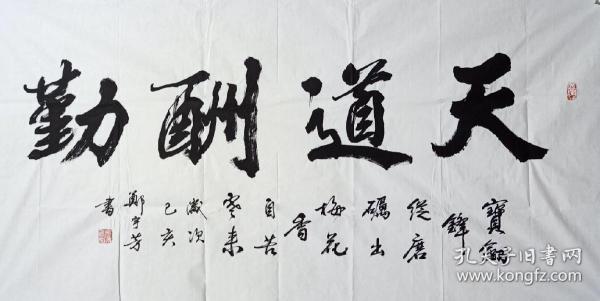 天道酬勤
寶劍
鋒
從磨
礪出
梅花
香
自苦
寒来
歲次
己亥
鄭宇芳
書
孔夫子旧书网
www.kongfz.com